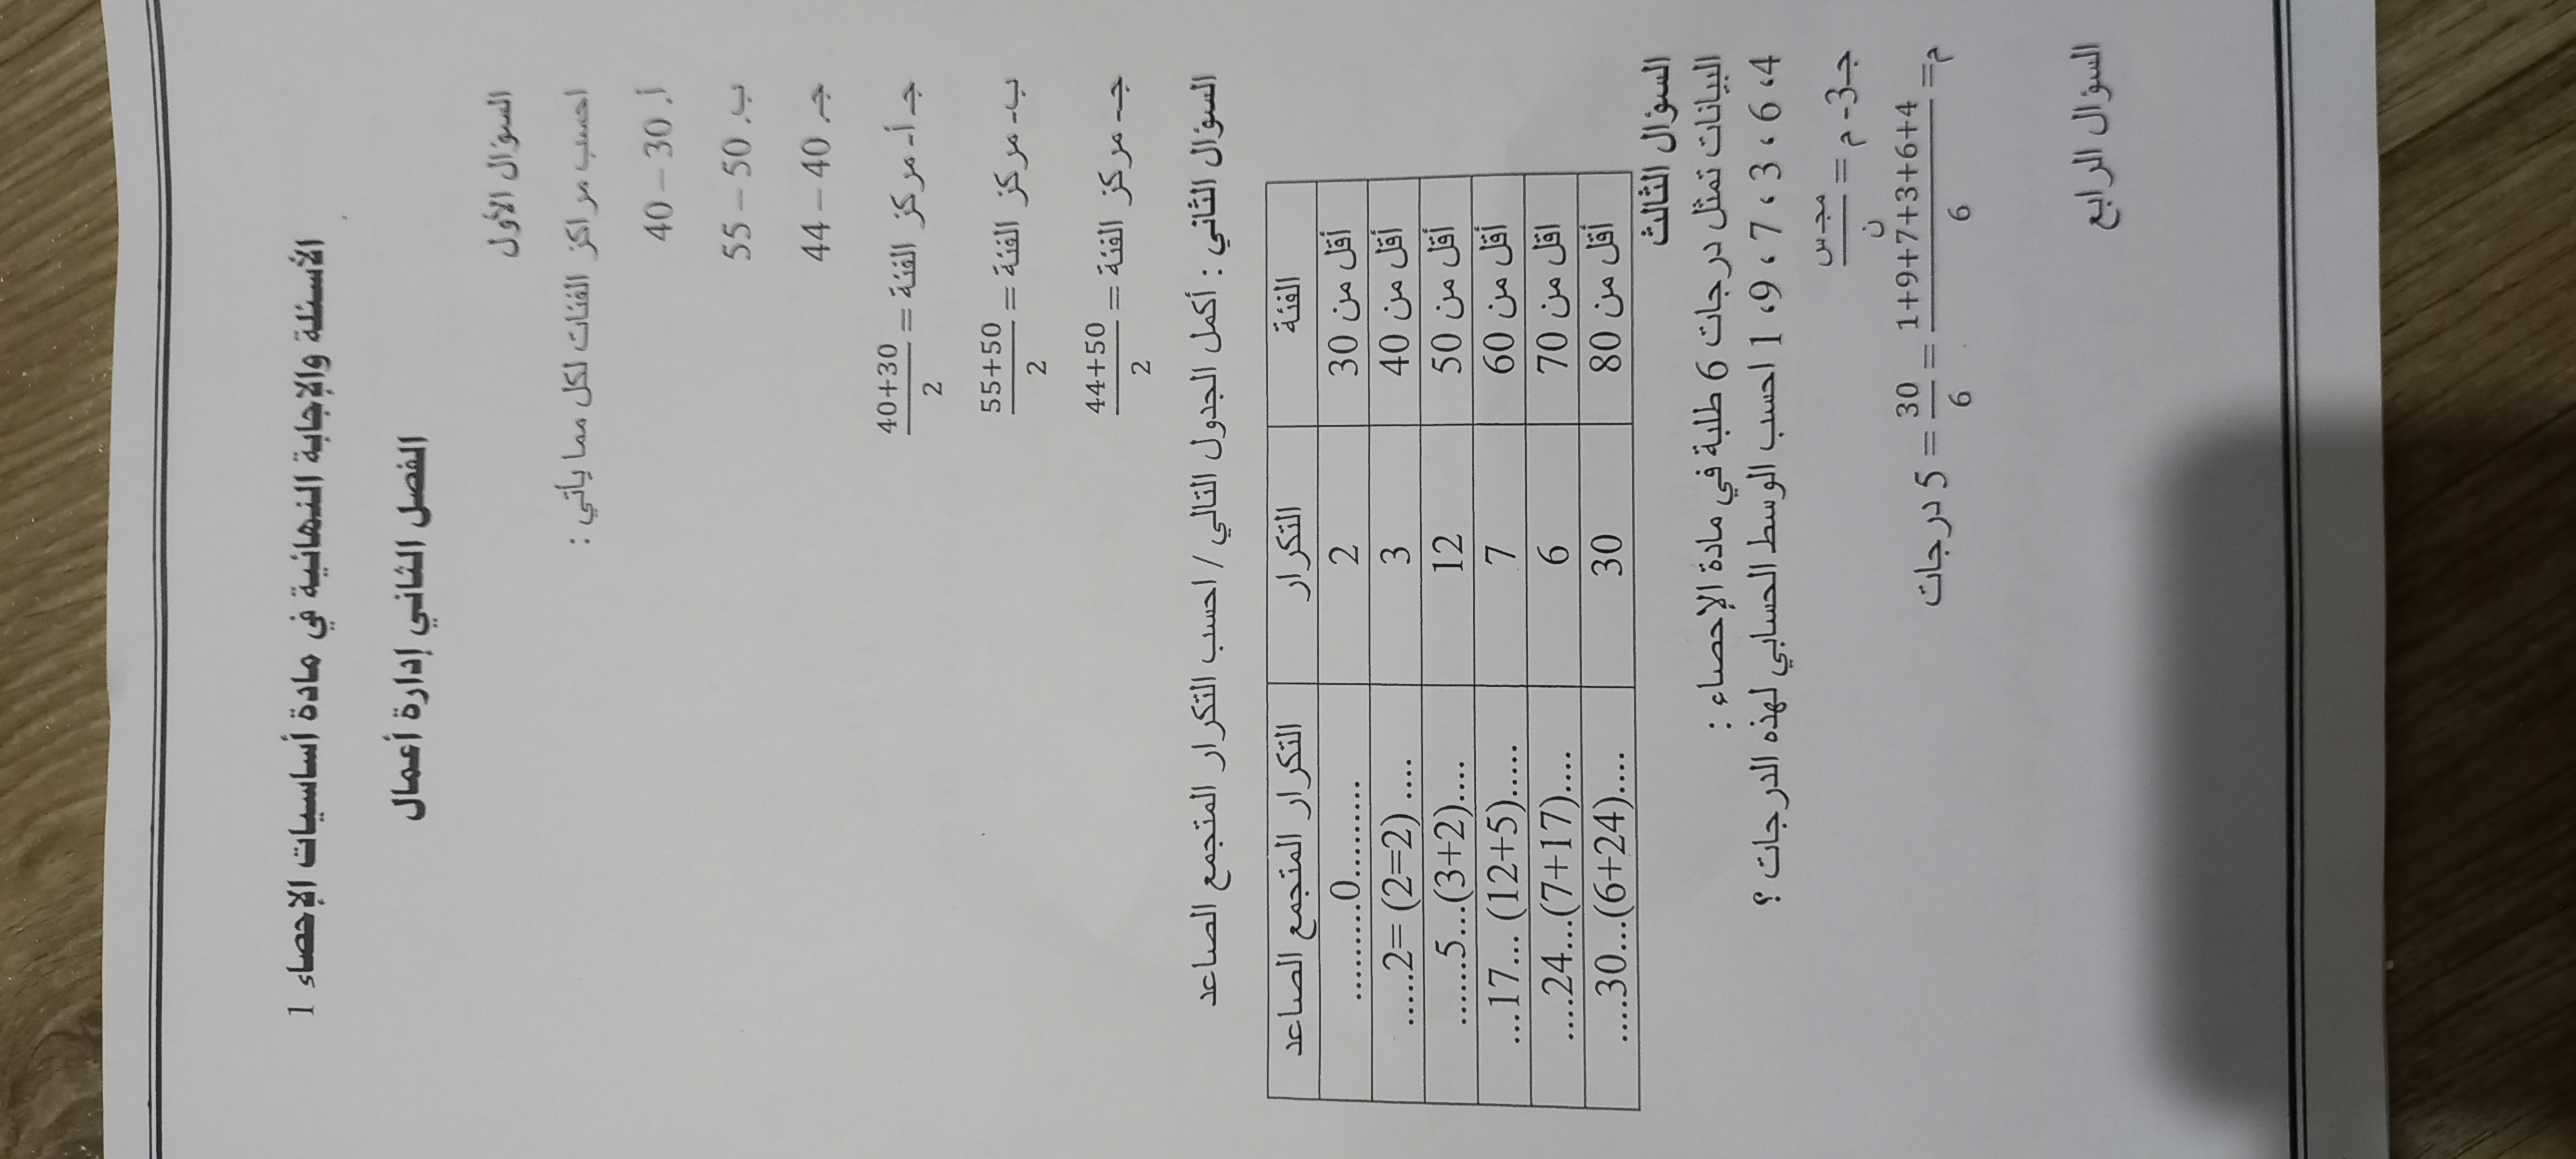 الأسئلة والإجابة النهائية في مادة أساسيات الإحصاء 1
الفصل الثاني إدارة أعمال
السؤال الأول
احسب مراكز الفئات لكل مما يأتي :
أ. 30 – 40
ب. 50 – 55
جـ. 40 – 44
جـ أ- مركز الفئة = 40+30 / 2
ب- مركز الفئة = 55+50 / 2
جـ- مركز الفئة = 44+50 / 2
السؤال الثاني : أكمل الجدول التالي / احسب التكرار المتجمع الصاعد
الفئة التكرار التكرار المتجمع الصاعد
أقل من 30 2 .........0.........
أقل من 40 3 .... (2=2) =2.....
أقل من 50 12 ....(3+2)...5......
أقل من 60 7 .....(12+5) ...17...
اقل من 70 6 ....(7+17)...24....
أقل من 80 30 ....(6+24)...30....
السؤال الثالث
البيانات تمثل درجات 6 طلبة في مادة الإحصاء :
4، 6 ، 3 ، 7 ، 9، 1 احسب الوسط الحسابي لهذه الدرجات ؟
جـ3- م = مجـ س / ن
م= 1+9+7+3+6+4 / 6 = 30 / 6 = 5 درجات
السؤال الرابع